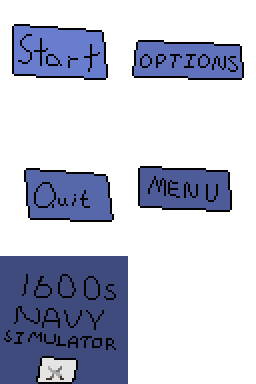 Start
OPTIONS
Quit
MENU
1600s
NAVY
SIMULATOR
X